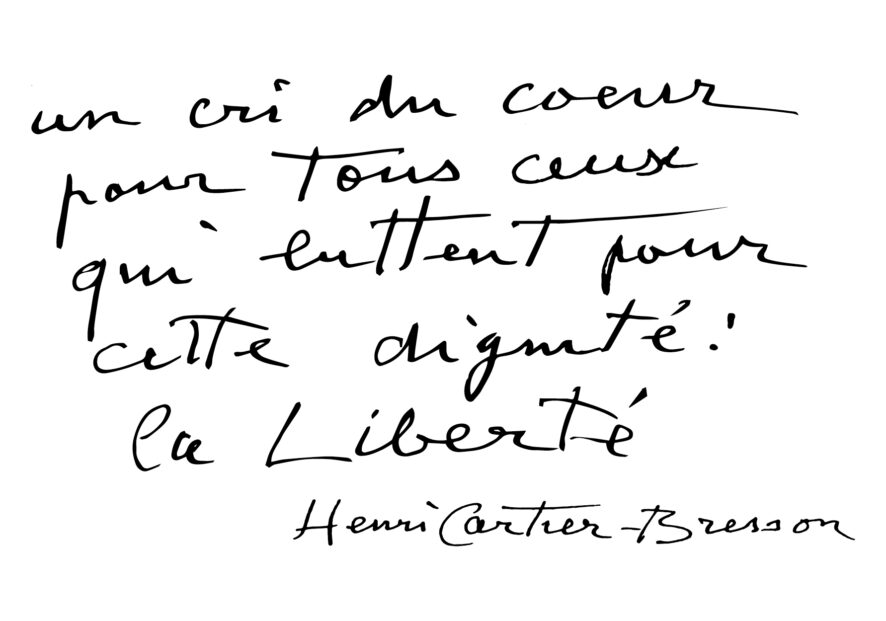 un cri du coeur
pour Tous ceux
qui luttent pour
cette dignité :
la Liberté
Henri Cartier-Bresson